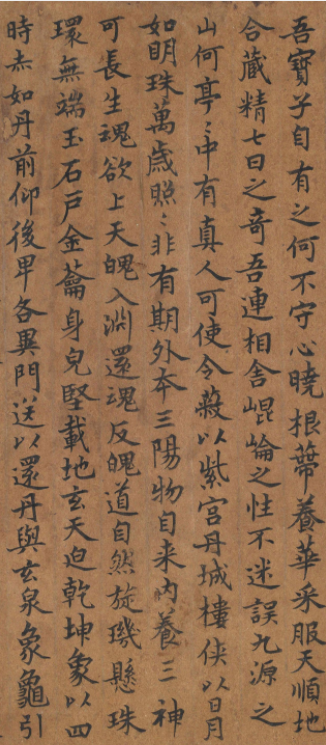 吾寶子自有之何不守心曉根蔕養華采服天順地
合藏精七日之奇吾連相舎崐崘之性不迷誤九源之
山何亭〻中有真人可使令蔽以紫宮丹城樓俠以日月
如明珠萬歲照〻非有期外本三陽物自来内養三神
可長生魂欲上天魄入淵還魂反魄道自然旋璣懸珠
環無端玉石戸金蘥身皃堅載地玄天迫乾坤象以四
時赤如丹前仰後卑各異門送以還丹與玄泉象龜引